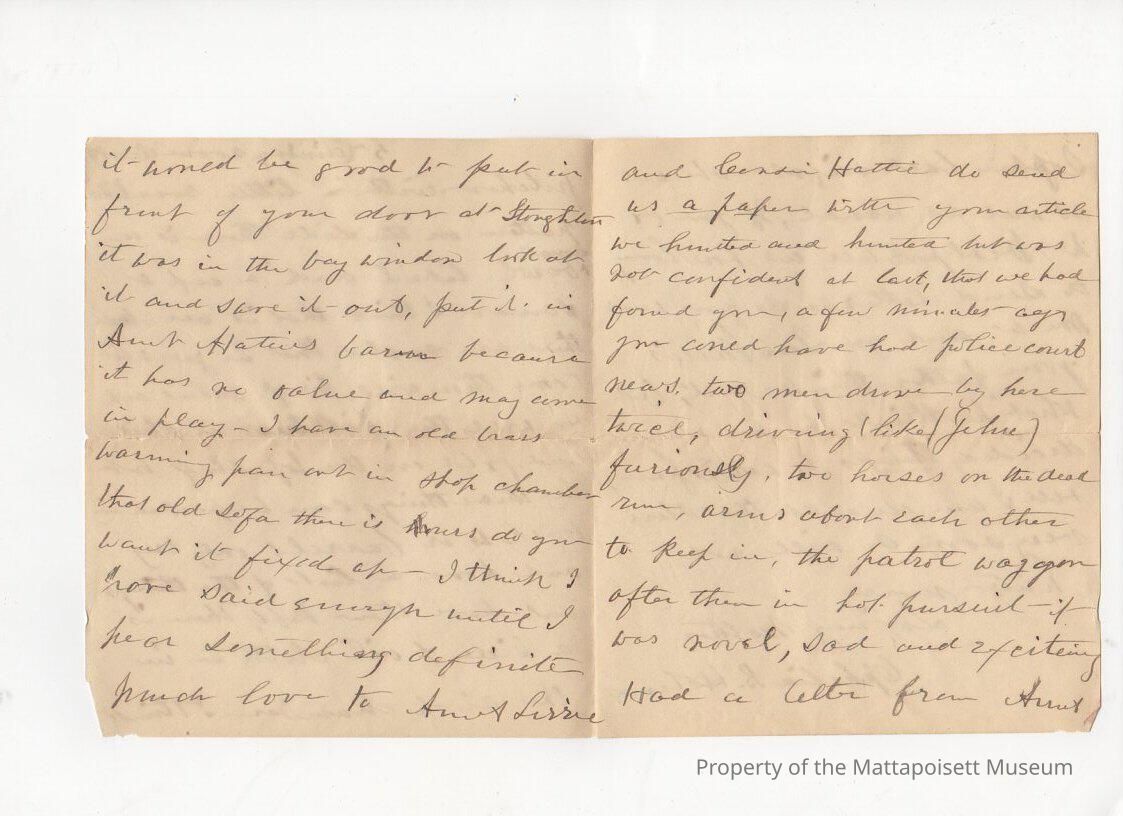 it would be good to put in
front of your door at Stoughton
it was in the bay window look at
it and save it out, put it in
Aunt Haties barn because
it has no value and may come
in play - I have an old brass
warming pan out in shop chamber
that old sofa there is yours do you
want it fixed up - I think I
have said enough until I
hear something definite
Much love to Aunt Lizzie
and Cousin Hattie do send
us a paper with your article
we hunted and hunted but was
not confident at last, that we had
found you, a few minutes ago
you could have had police court
news. two men drove by here
twice, driving (like (Jehu)
furiously, two horses on the dead
run, arms about each other
to keep in, the patrol waggon
after them in hot pursuit - it
was novel, sad and exciteing
Had a letter from Aunt
Property of the Mattapoisett Museum